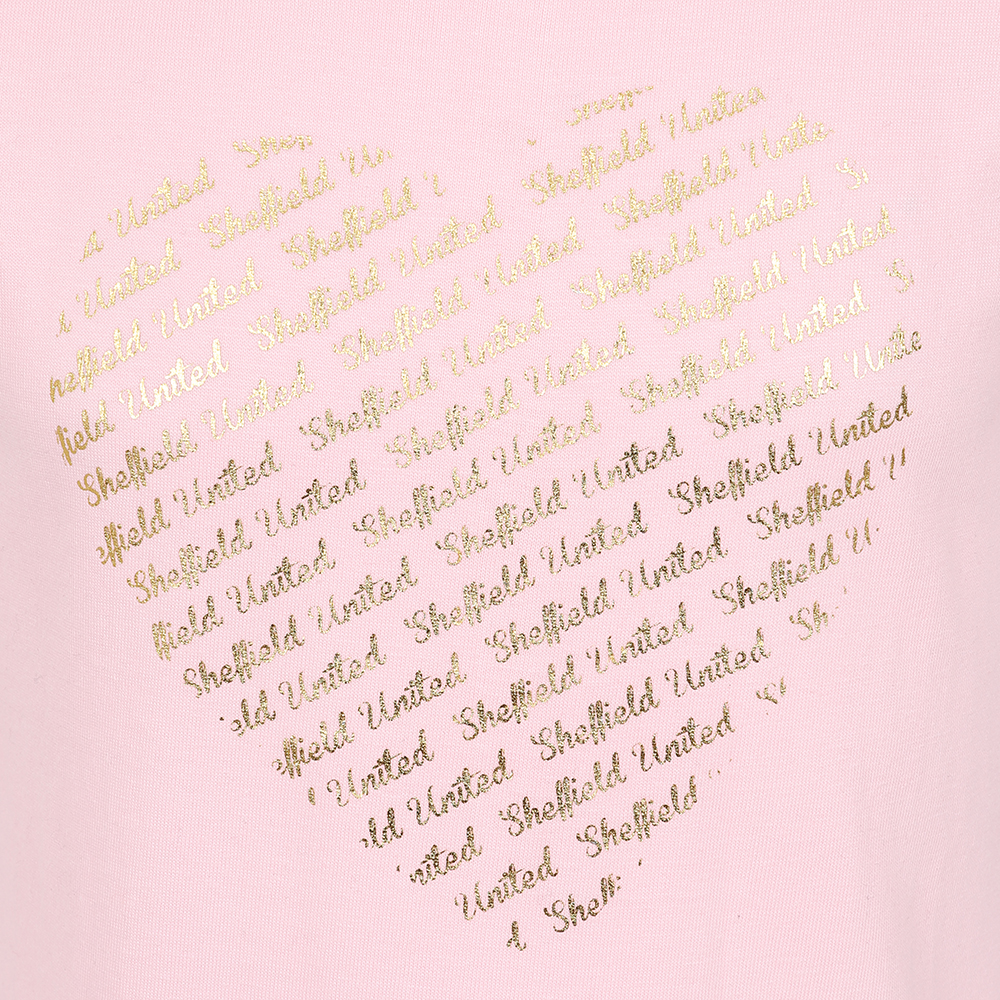 d United Shef
d United Sheffield Un
heffield United Sheffield U
field United Sheffield United Sheffield United
Sheffield United Sheffield United Sheffield Unite
effield United Sheffield United Sheffield United S
Sheffield United Sheffield United Sheffield United
ffield United Sheffield United Sheffield United S
Sheffield United Sheffield United Sheffield Unite
eld United Sheffield United Sheffield United
ffield United Sheffield United Sheffield U
United Sheffield United Sheffield U
ld United Sheffield United Sh
nited Sheffield United S
United Sheffield
d Sheff